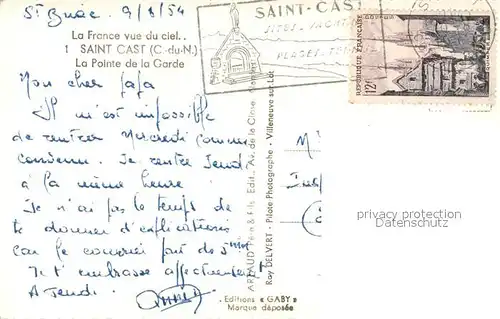 St Briac 9/8/54
La France vue du ciel..
1 SAINT CAST (C.-du-N.)
La Pointe de la Garde
Mon cher papa
Il m'est impossible
de rentrer Mercredi comme
convenu. Je rentre Jeudi
à la même heure
Je n'ai pas le temps de
te donner d'explications
car le courrier part de suite
Je t'embrasse affectueusement
A Jeudi.
SAINT-CAST
SITES
PLAGES
REPUBLIQUE FRANÇAISE
12F
POSTES
ARNAUD Père & Fils, Edit., Av. de la Gloire
Ray DELVERT - Pilote Photographe - Villeneuve-sur-Lot
Editions « GABY »
Marque déposée
M
privacy protection
watermark